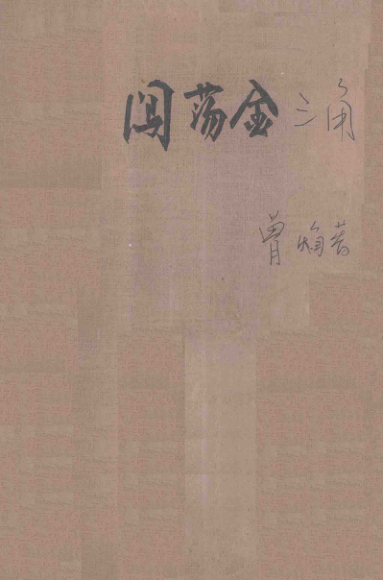 闯荡金三角
曾焰著